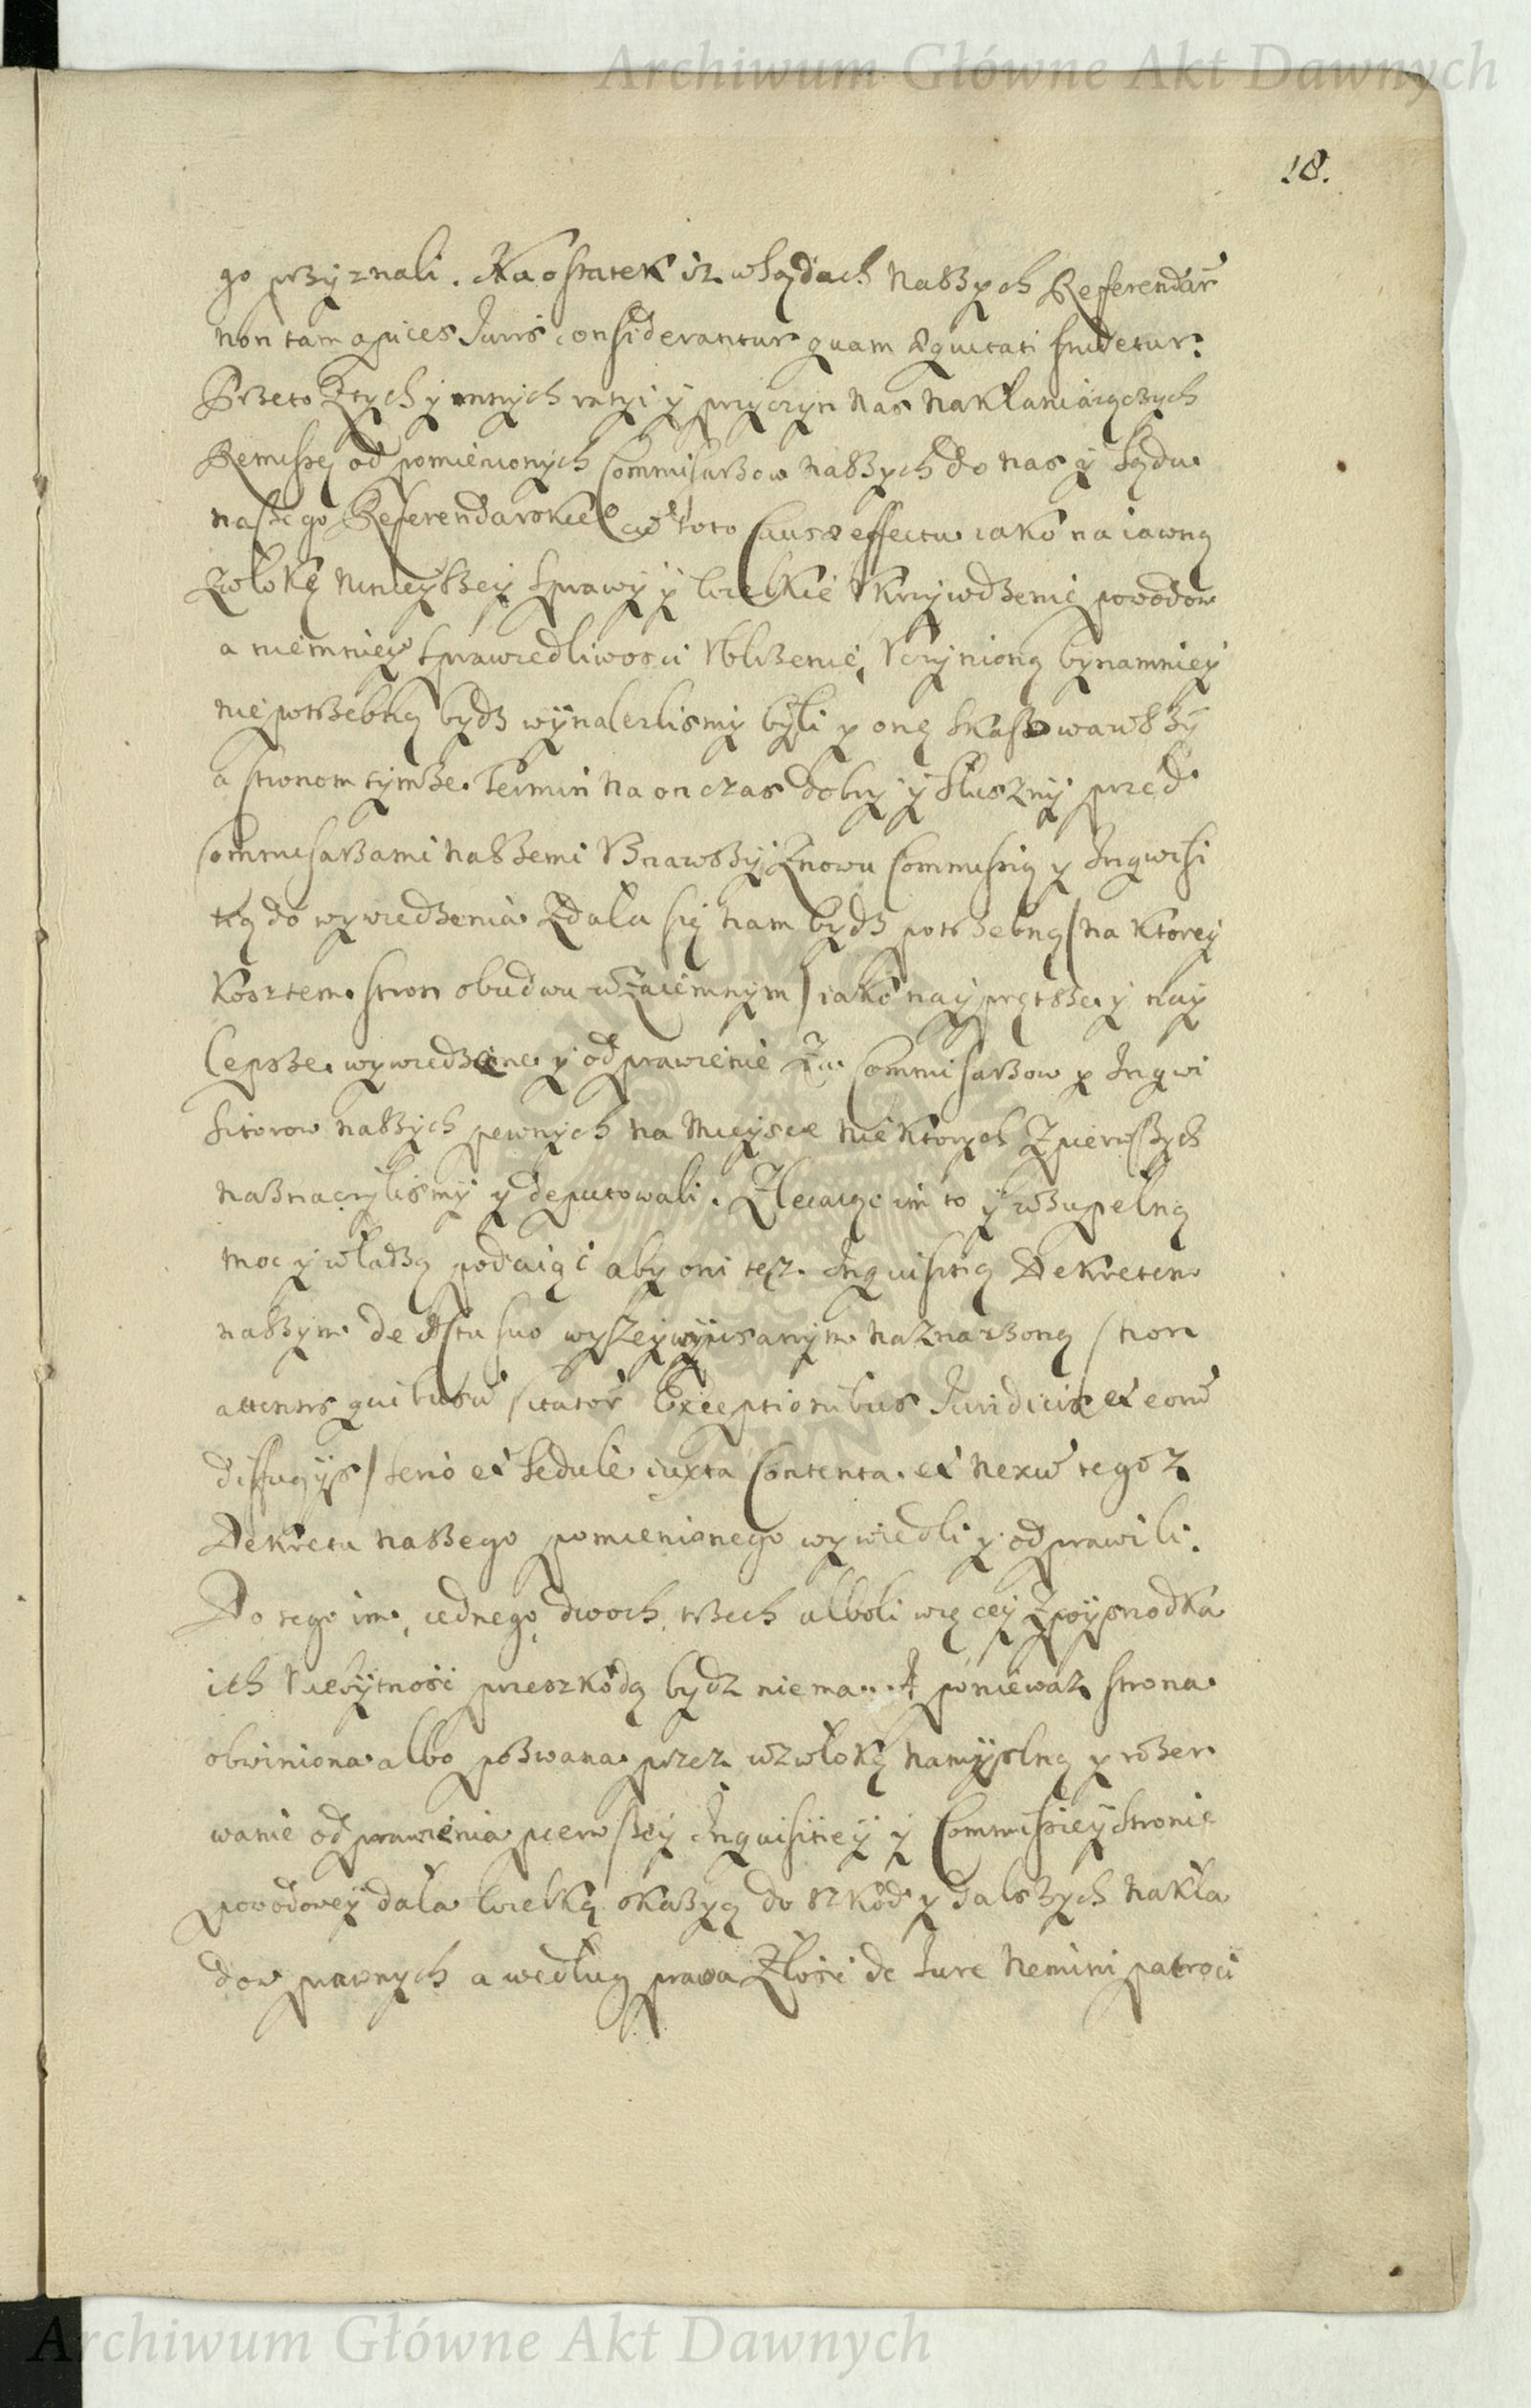 Archiwum Główne Akt Dawnych
18.
go przyznali. Na ostatek iz w sądach naszych Referendar
non tam apices Juris considerantur quam æquitati studetur.
Przeto z tych y innych racyi y przyczyn nas nakłaniaiączych
Remissę od pomienionych Commisarzow naszych do nas y sądu
naszego Referendarskie° cū toto causæ effectu iako na iawną
zwłokę ninieyszey sprawy y wielkie ukrzywdzenie powodow
a niemniey sprawiedliwosci ubliżenie, uczynioną bynamniey
niepotrzebną bydz wynalezlismy byli y onę skassowawszy
a stronom tymże termin na on czas dobry y słuszny przed
Commisarzami naszemi uznawszy znowu Commissią y Inqwisi
tią do wywiedzenia zdała się nam bydz potrzebną / na ktorey
kosztem stron obudwu wzaiemnym / iako nayprętsze y nay
lepsze wywiedzenie y odprawienie za Commisarzow y Inqwi
sitorow naszych pewnych na mieysce niektorych z pierwszych
naznaczylismy y deputowali. Zlecaiąc im to y w zupełną
moc y władzą podaiąc aby oni tesz Inquisitią Dekretem
naszym de Actu suo wyszey wypisanym naznaczoną / non
attentis quibusvis citator Exceptionibus Juridicis et eorū
diffugijs / serio et sedule iuxta contenta et nexū tegoz
Dekretu naszego pomienionego wywiedli y odprawili.
Do tego im, iednego, dwoch, trzech alboli więcey z pośrzodka
ich niebytnosc przeszkodą bydz niema. A poniewaz strona
obwiniona albo pozwana przez wzwłokę namyslną y rozer
wanie odprawienia pierwszey Inquisitiey y Commissiey stronie
powodowey dała wielką okazyą do szkod y dalszych nakła
dow prawnych a według prawa złość de Jure nemini patroci
Archiwum Główne Akt Dawnych